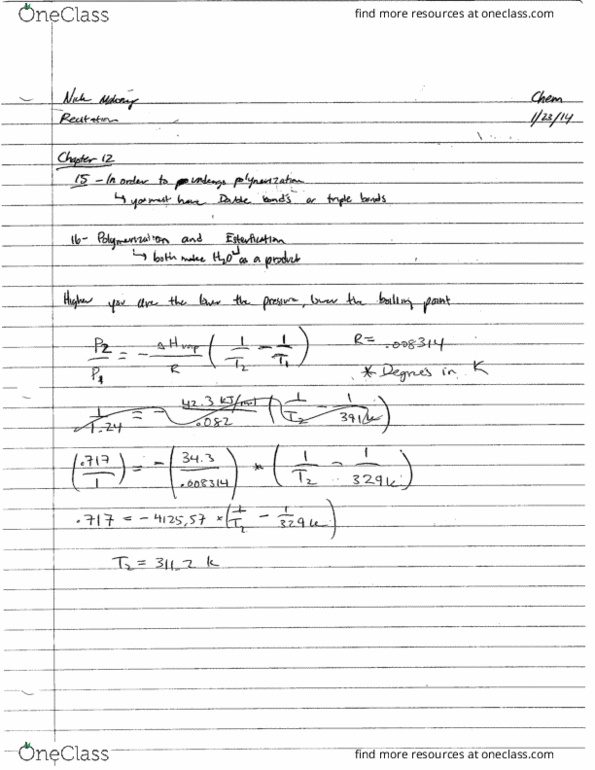 OneClass
find more resources at oneclass.com
Nick
Chem
Recitation
1/23/14
Chapter 12
15 - In order to undergo polymerization
↳ you must have Double bonds or triple bonds
16 - Polymerization and Esterfication
↳ both make H₂O as a product
Higher you are the lower the pressure, lower the boiling point
P2/P1 = - ΔHvap/R (1/T2 - 1/T1)
R = .008314
* Degrees in K
1/1.24 = - 42.3 kJ/mol/.082 (1/T2 - 1/391k)
(.717/1) = - (34.3/.008314) * (1/T2 - 1/329k)
.717 = -4125,57 * (1/T2 - 1/329k)
T2 = 311.2 k
OneClass
find more resources at oneclass.com